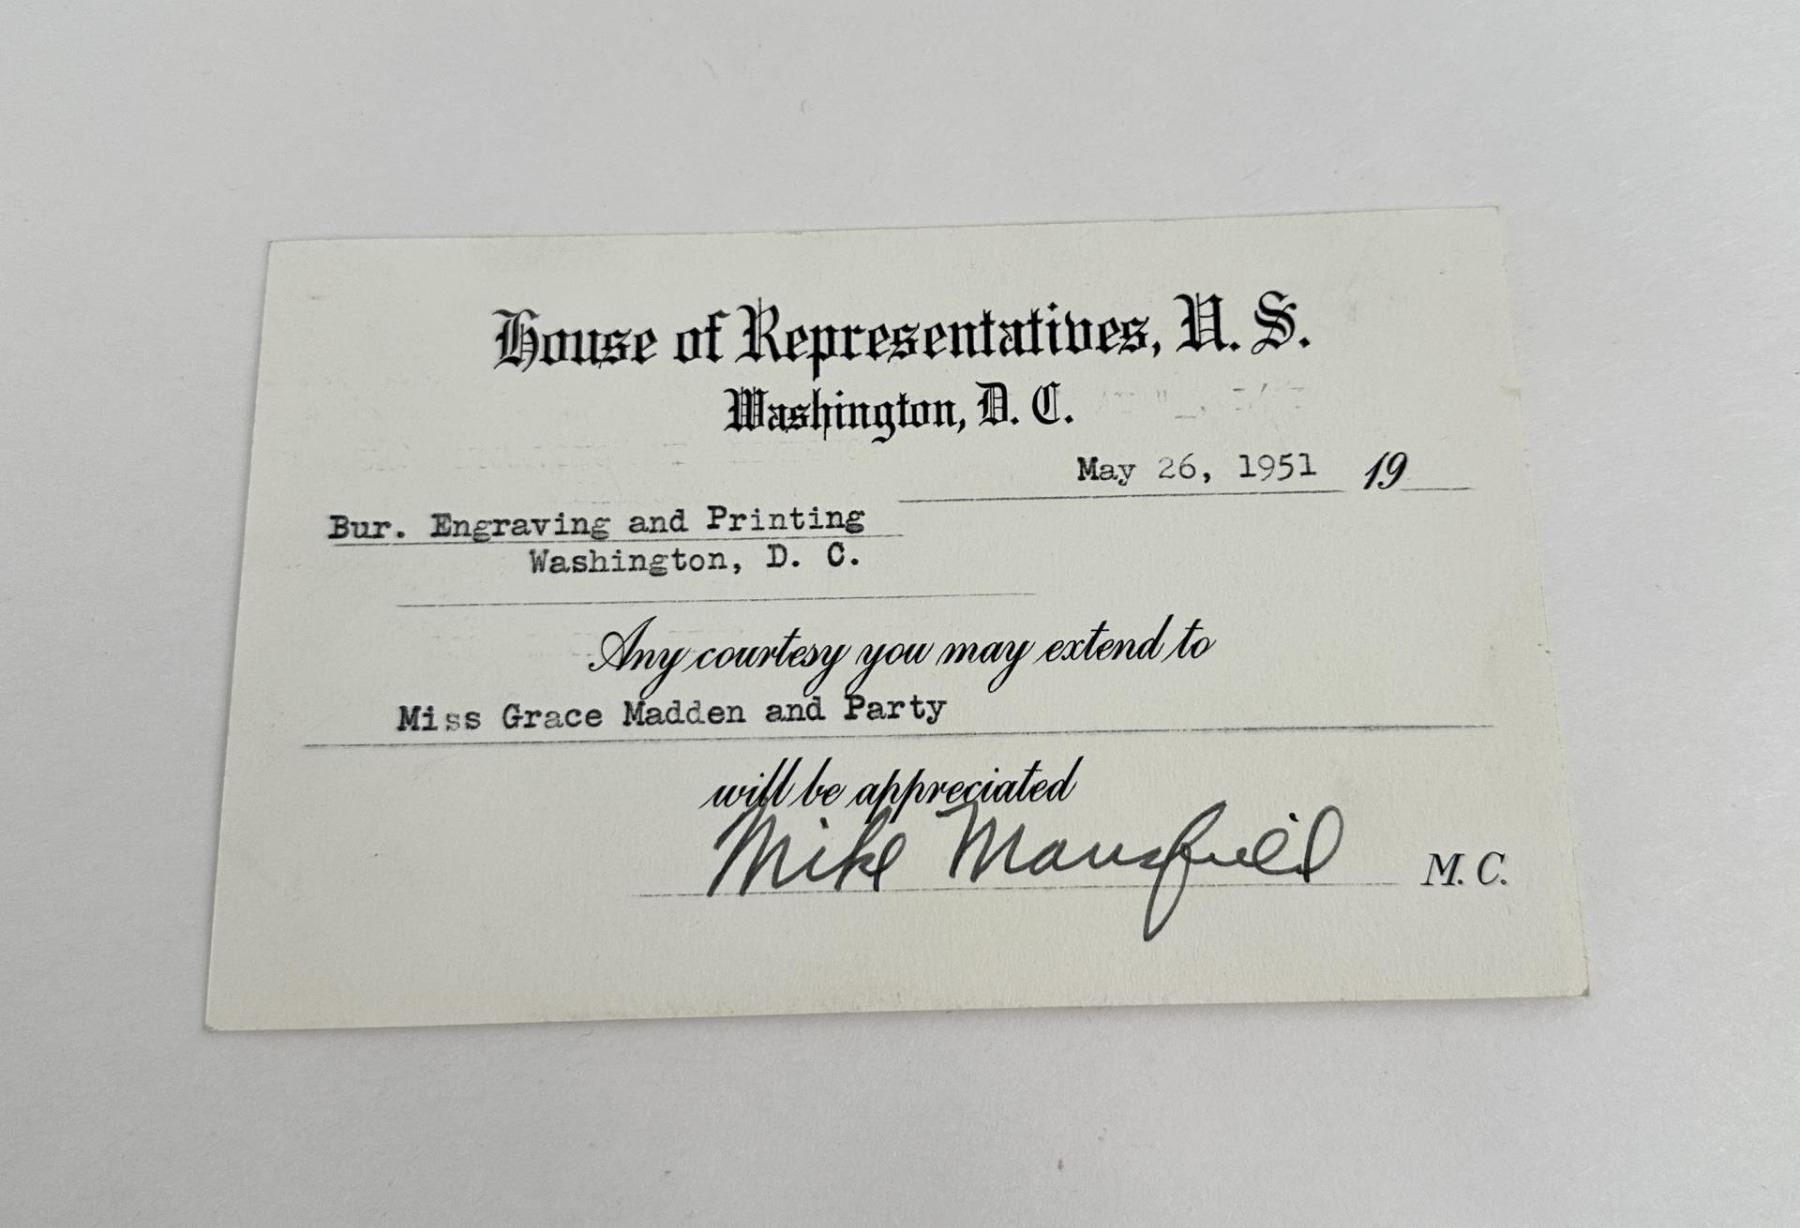 House of Representatives, U. S.
Washington, D. C.
May 26, 1951 19
Bur. Engraving and Printing
Washington, D. C.
Any courtesy you may extend to
Miss Grace Madden and Party
will be appreciated
Mike Mansfield M. C.